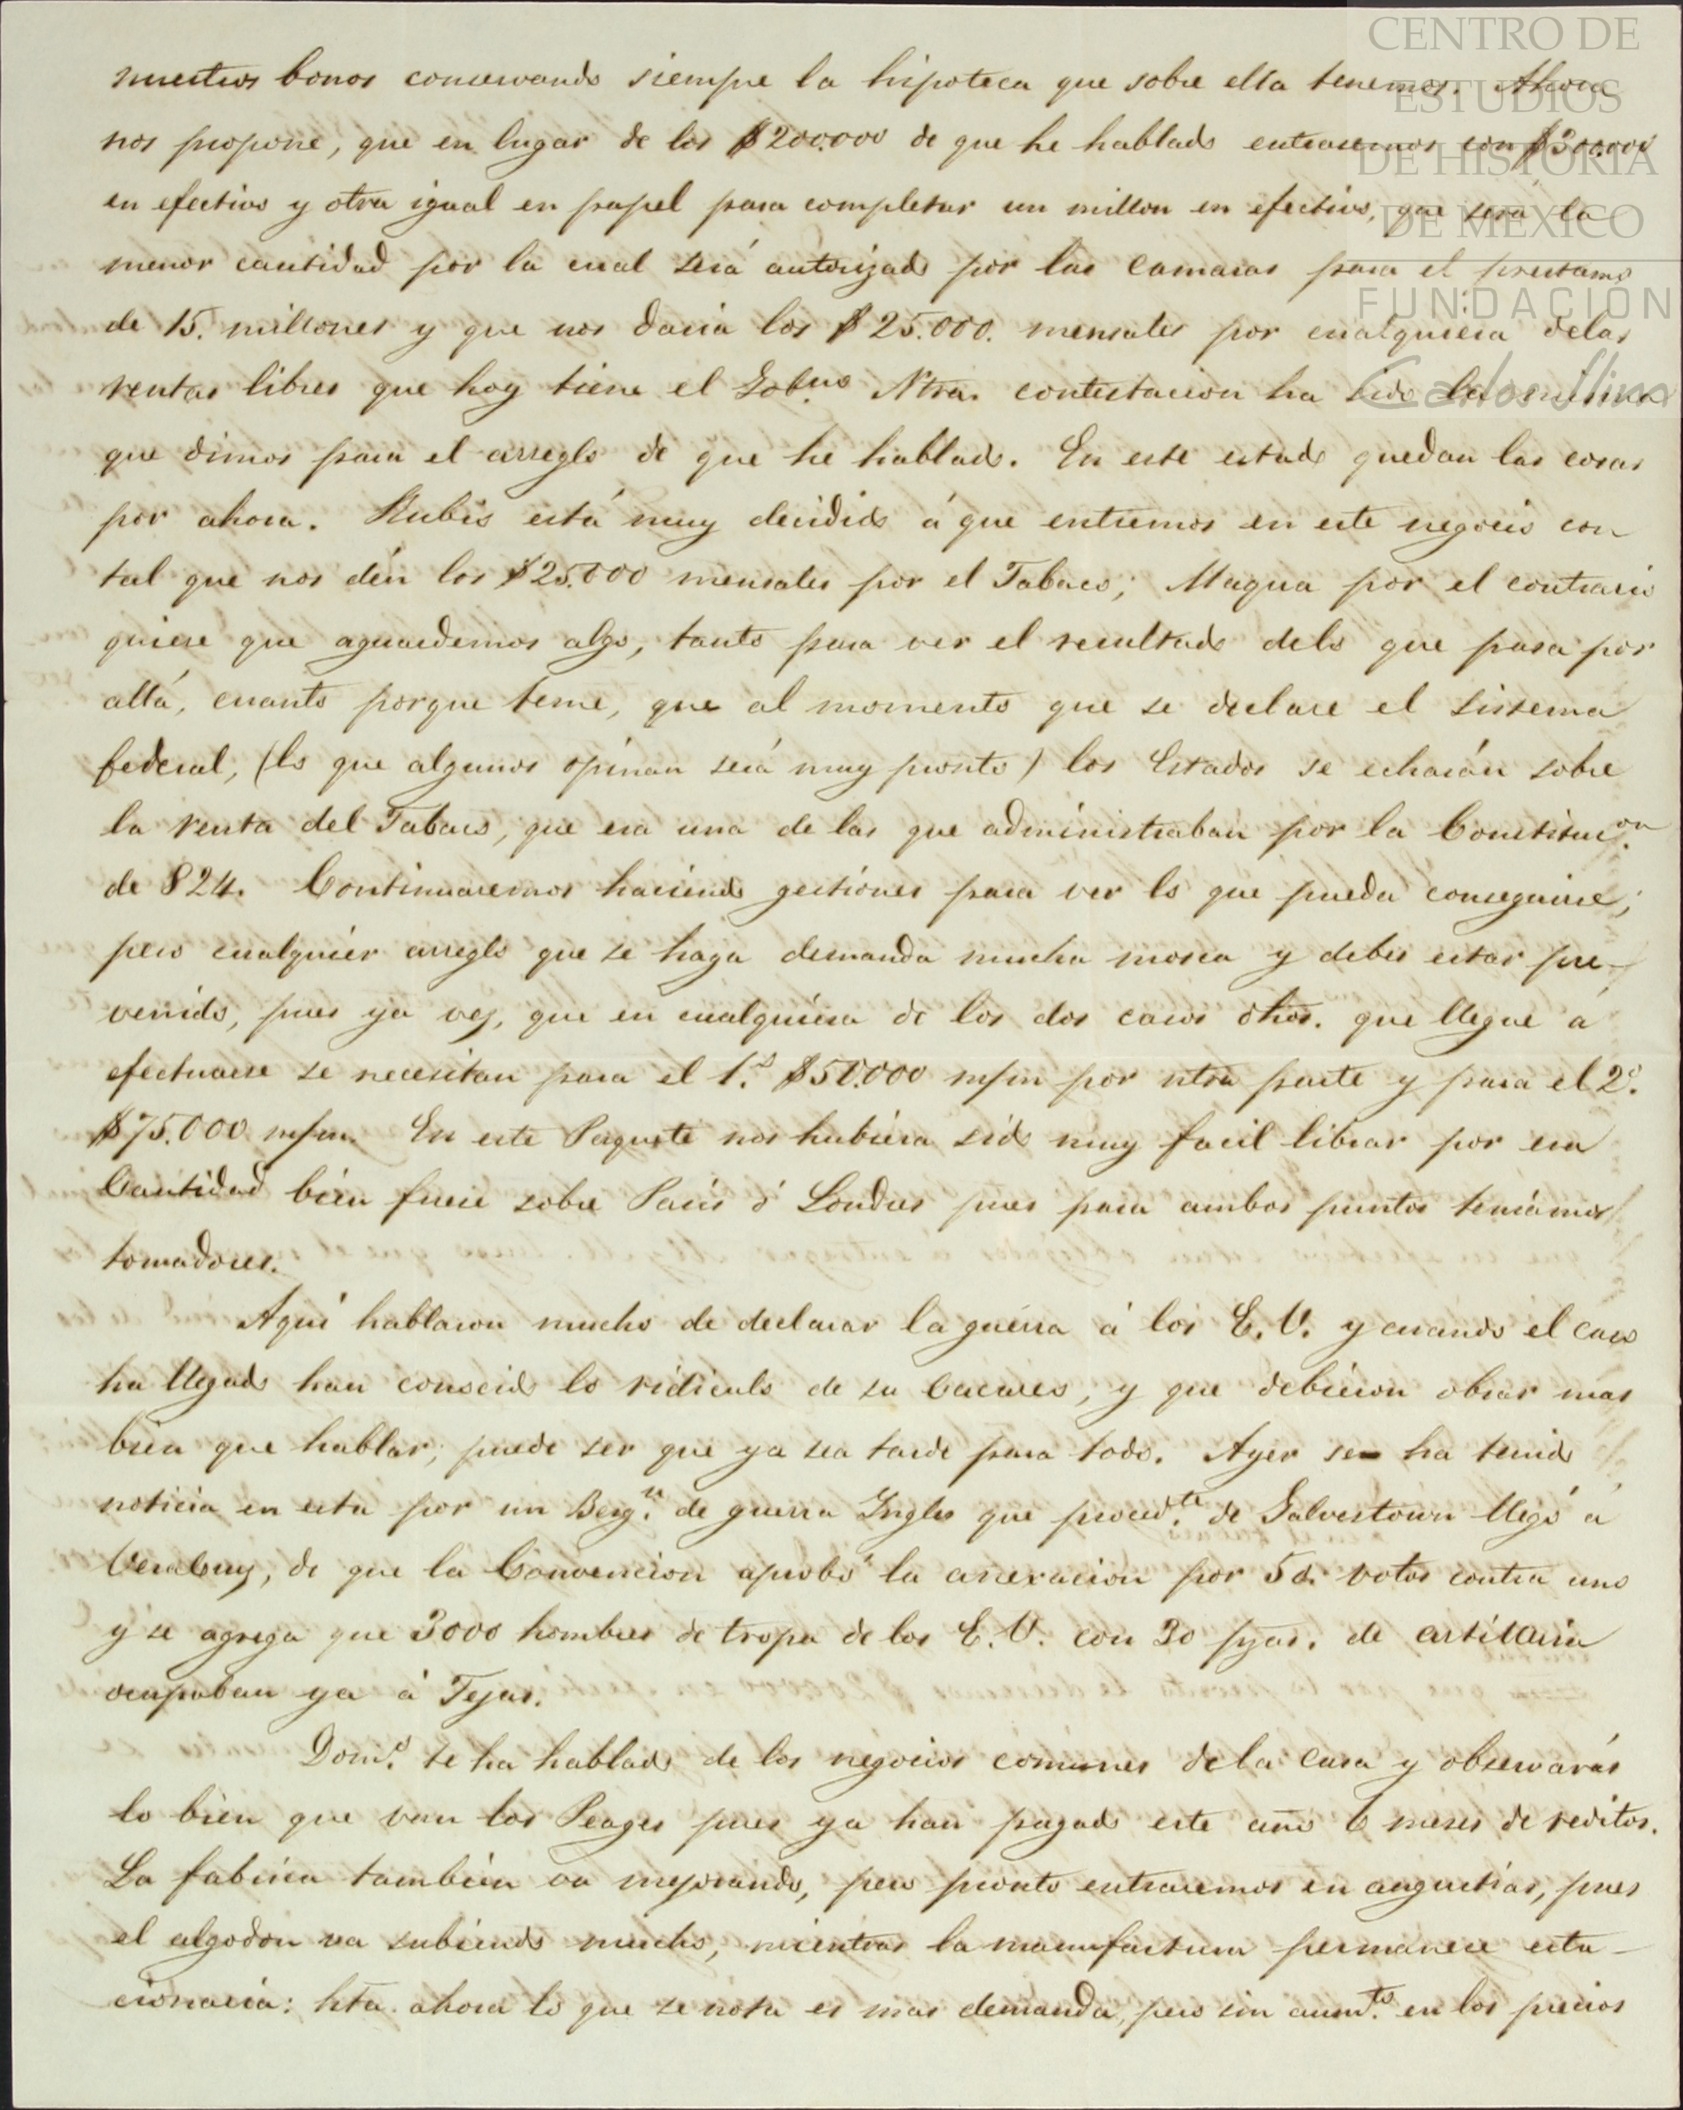 CENTRO DE
ESTUDIOS
DE HISTORIA
DE MEXICO
FUNDACIÓN
Carlos Slim
nuestros bonos conservando siempre la hipoteca que sobre ella tenemos. Ahora
nos propone, que en lugar de los $200.000 de que he hablado entrasemos con $300.000
en efectivo y otra igual en papel para completar un millon en efectivo, que será la
menor cantidad por la cual será autorizado por las Camaras para el prestamo
de 15. millones y que nos daria los $25.000. mensales por cualquiera delas
rentas libres que hoy tiene el Gobno Ntra. contestacion ha sido la misma
que dimos para el arreglo de que he hablado. En este estado quedan las cosas
por ahora. Rubio está muy decidido á que entremos en este negocio con
tal que nos dén los $25.000 mensales por el Tabaco; Magua por el contrario
quiere que aguardemos algo, tanto para ver el resultado delo que pasa por
allá, cuanto porque teme, que al momento que se declare el sistema
federal, (lo que algunos opinan será muy pronto) los Estados se echarán sobre
la renta del Tabaco, que era una de las que administraban por la Constitucion.
de 824. Continuaremos haciendo gestiones para ver lo que pueda conseguirse;
pero cualquier arreglo que se haga demanda mucha mosca y debes estar pre-
venido, pues ya vez, que en cualquiera de los dos casos dhos. que llegue á
efectuarse se necesitan para el 1.o $50.000 m/m por ntra parte y para el 2.o
$75.000 m/m. En este Paquete nos hubiera sido muy facil librar por esa
Cantidad bien fuese sobre Paris ó Londres pues para ambos puntos teniamos
tomadores.
Aqui hablaron mucho de declarar la guerra á los E.U. y cuando el caso
ha llegado han conocido lo ridiculo de su Cacareo, y que debieron obrar mas
bien que hablar; puede ser que ya sea tarde para todo. Ayer se ha tenido
noticia en esta por un Berg.n de guerra Yngles que proced.te de Galvestown llegó á
Veracruz, de que la Convencion aprobó la anexacion por 50. votos contra uno
y se agrega que 3000 hombres de tropa de los E.U. con 30 pzas. de artilleria
ocupaban ya á Tejas.
Dom.o te ha hablado de los negocios comunes de la Casa y observarás
lo bien que van los Peages pues ya han pagado este año 6 meses de reditos.
La fabrica tambien va mejorando, pero pronto entraremos en angustias, pues
el algodon va subiendo mucho, mientras la manufactura permanece esta-
cionaria: hta. ahora lo que se nota es mas demanda, pero sin aum.to en los precios